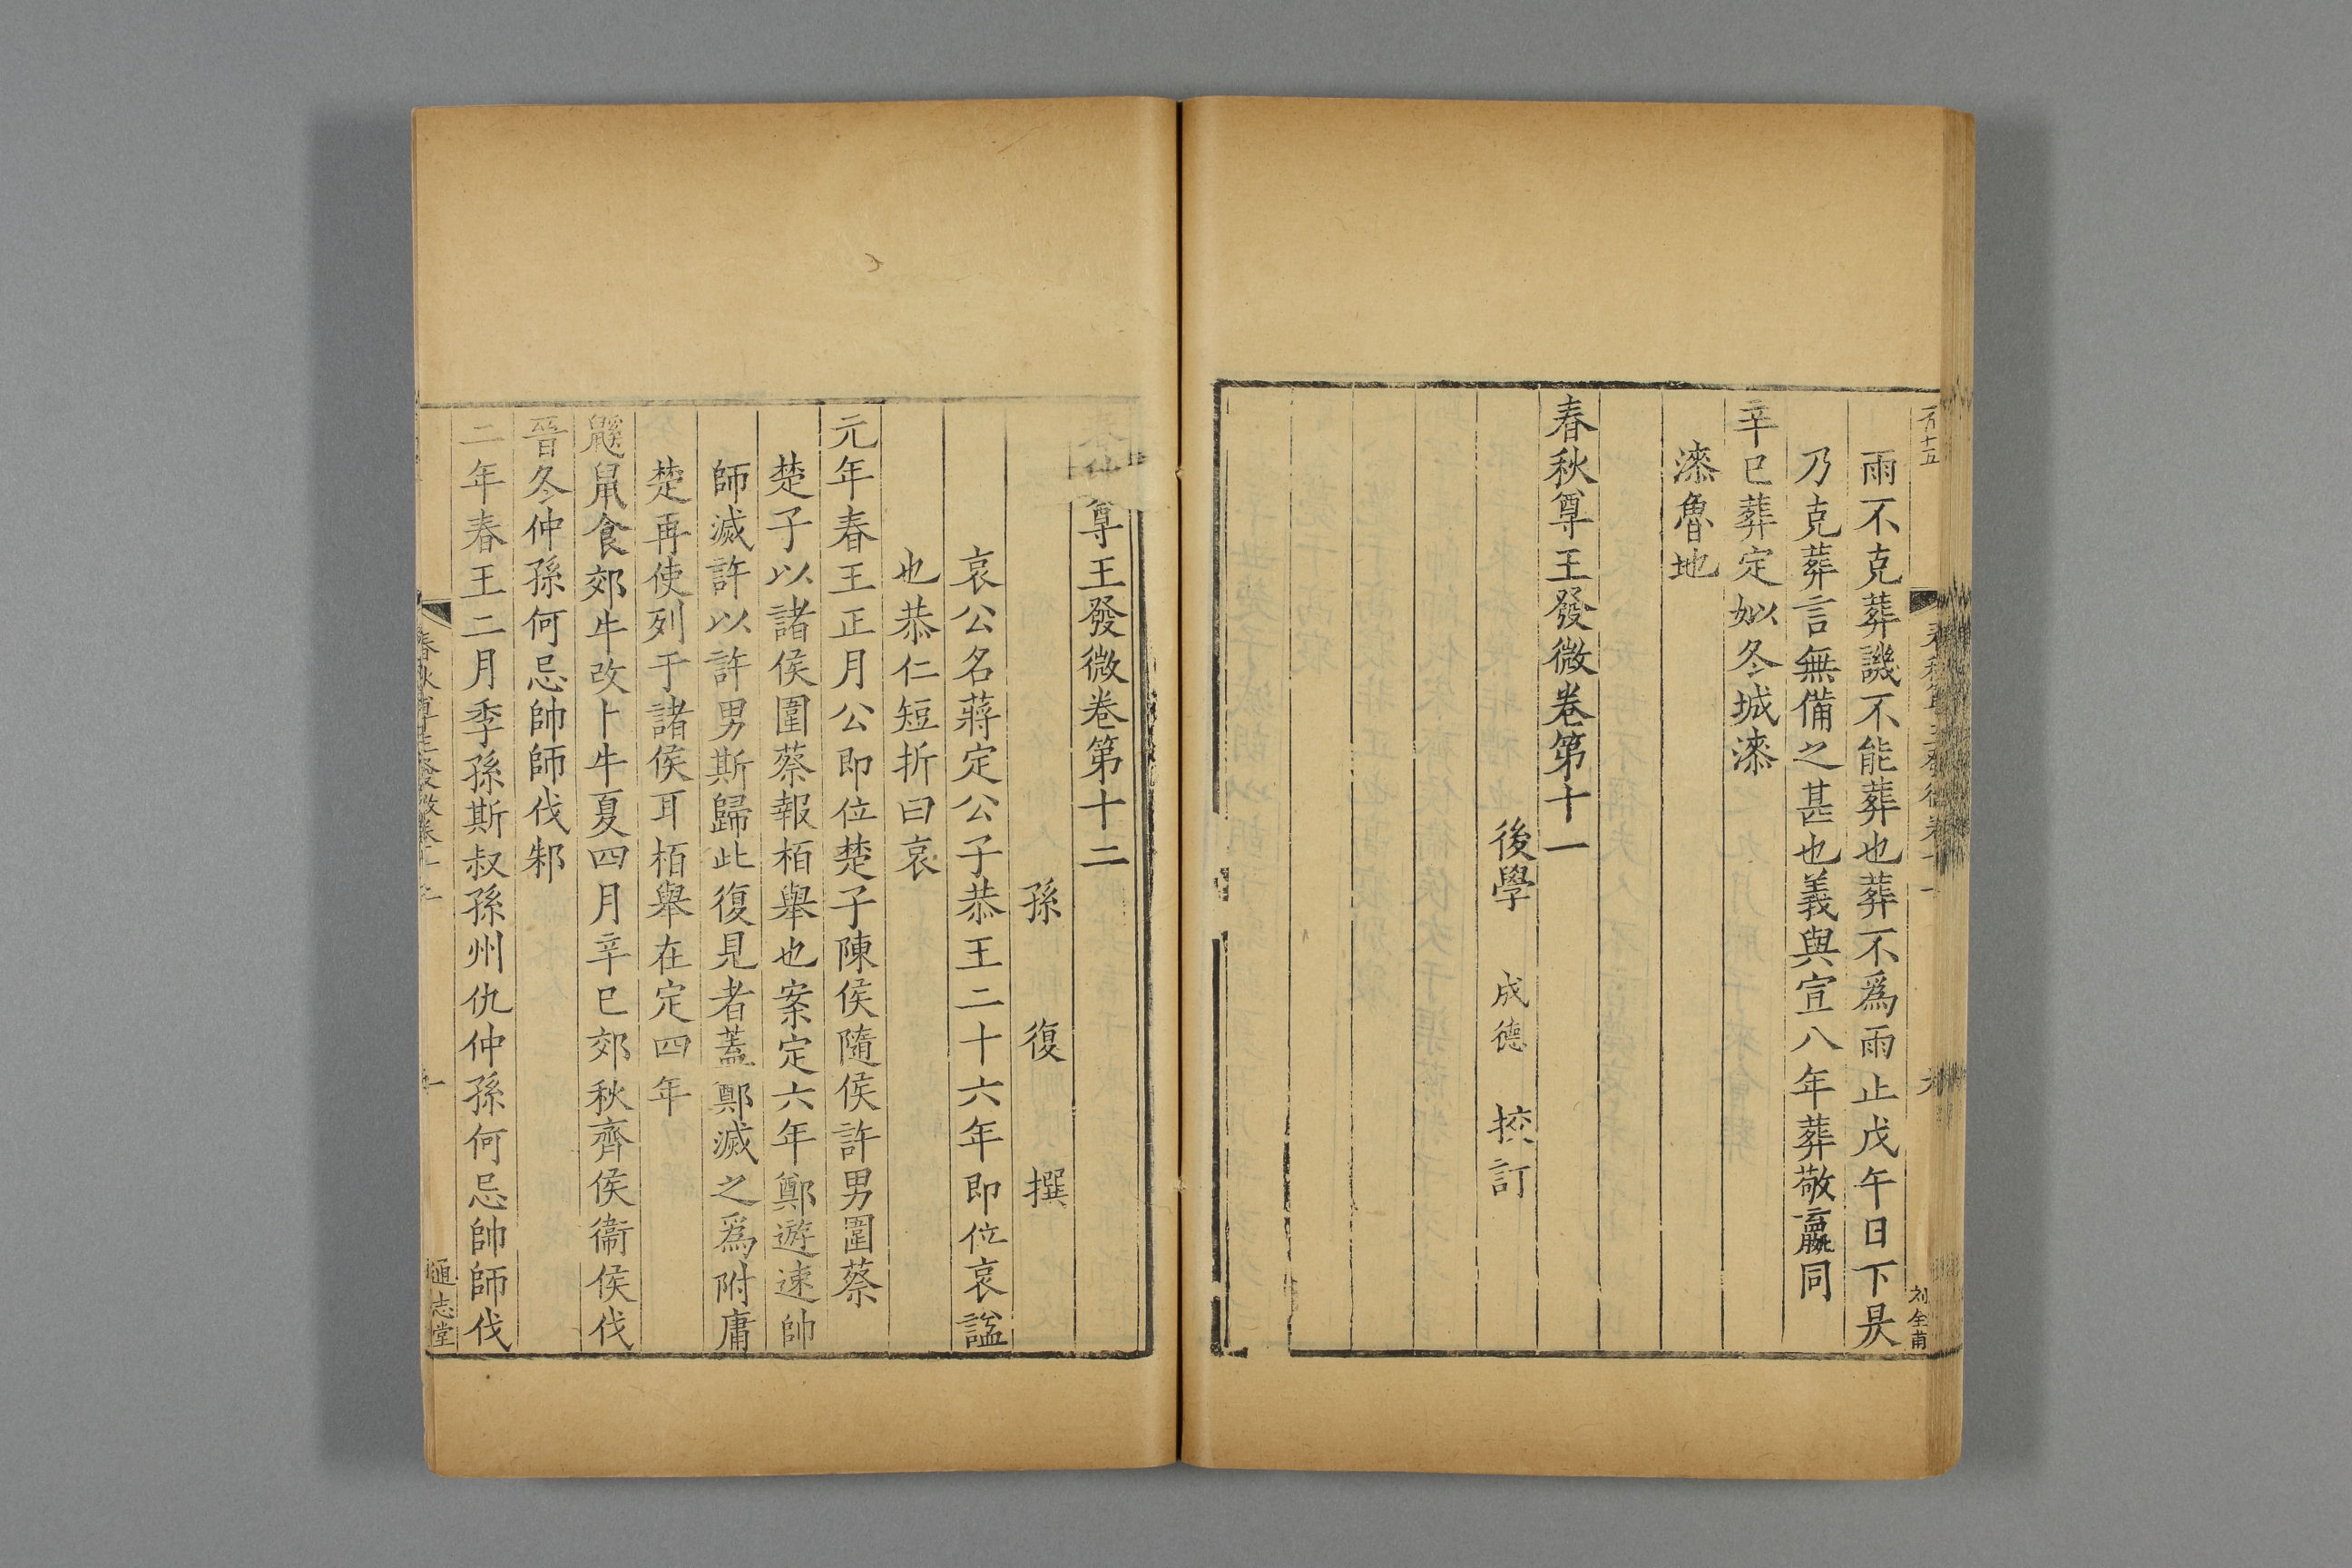 雨不克葬譏不能葬也葬不爲雨止戊午日下昃
乃克葬言無備之甚也義與宣八年葬敬嬴同
辛巳葬定姒冬城漆
漆魯地
春秋尊王發微卷第十一
後學 成德 挍訂
尊王發微卷第十二
孫 復 撰
哀公名蔣定公子恭王二十六年即位哀諡
也恭仁短折曰哀
元年春王正月公即位楚子陳侯隨侯許男圍蔡
楚子以諸侯圍蔡報栢舉也案定六年鄭遊速帥
師滅許以許男斯歸此復見者蓋鄭滅之爲附庸
楚再使列于諸侯耳栢舉在定四年
鼷鼠食郊牛改卜牛夏四月辛巳郊秋齊侯衞侯伐
晉冬仲孫何忌帥師伐邾
二年春王二月季孫斯叔孫州仇仲孫何忌帥師伐
春秋尊王發微卷十二
通志堂